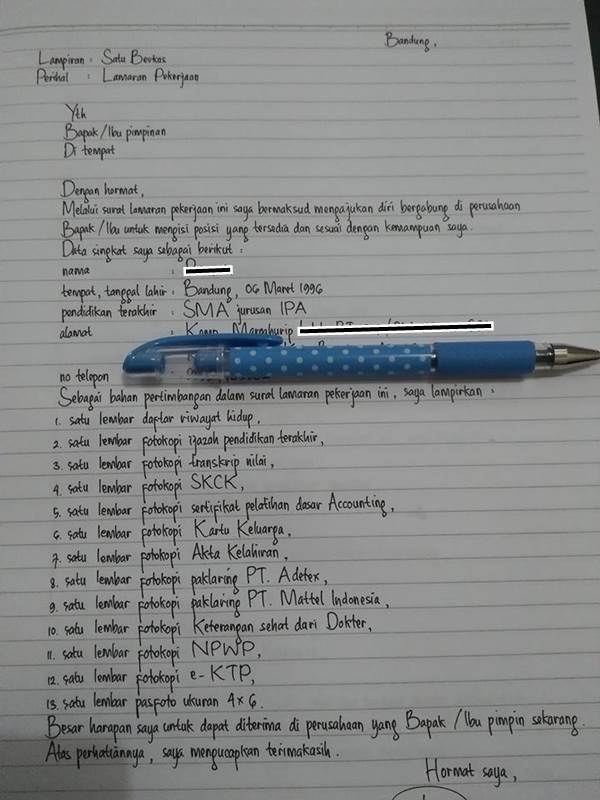 Bandung,
Lampiran : Satu Berkas
Perihal : Lamaran Pekerjaan
Yth
Bapak/Ibu pimpinan
Di tempat
Dengan hormat,
Melalui surat lamaran pekerjaan ini saya bermaksud mengajukan diri bergabung di perusahaan
Bapak/Ibu untuk mengisi posisi yang tersedia dan sesuai dengan kemampuan saya.
Data singkat saya sebagai berikut :
nama :
tempat, tanggal lahir : Bandung, 06 Maret 1996
pendidikan terakhir : SMA jurusan IPA
alamat : Kamp. Margahurip
no telepon
Sebagai bahan pertimbangan dalam surat lamaran pekerjaan ini, saya lampirkan :
1. satu lembar daftar riwayat hidup,
2. satu lembar fotokopi ijazah pendidikan terakhir,
3. satu lembar fotokopi transkrip nilai,
4. satu lembar fotokopi SKCK,
5. satu lembar fotokopi sertifikat pelatihan dasar Accounting,
6. satu lembar fotokopi Kartu Keluarga,
7. satu lembar fotokopi Akta Kelahiran,
8. satu lembar fotokopi paklaring PT. Adetex,
9. satu lembar fotokopi paklaring PT. Mattel Indonesia,
10. satu lembar fotokopi Keterangan sehat dari Dokter,
11. satu lembar fotokopi NPWP,
12. satu lembar fotokopi e-KTP,
13. satu lembar pasfoto ukuran 4x6.
Besar harapan saya untuk dapat diterima di perusahaan yang Bapak/Ibu pimpin sekarang.
Atas perhatiannya, saya mengucapkan terimakasih.
Hormat saya,